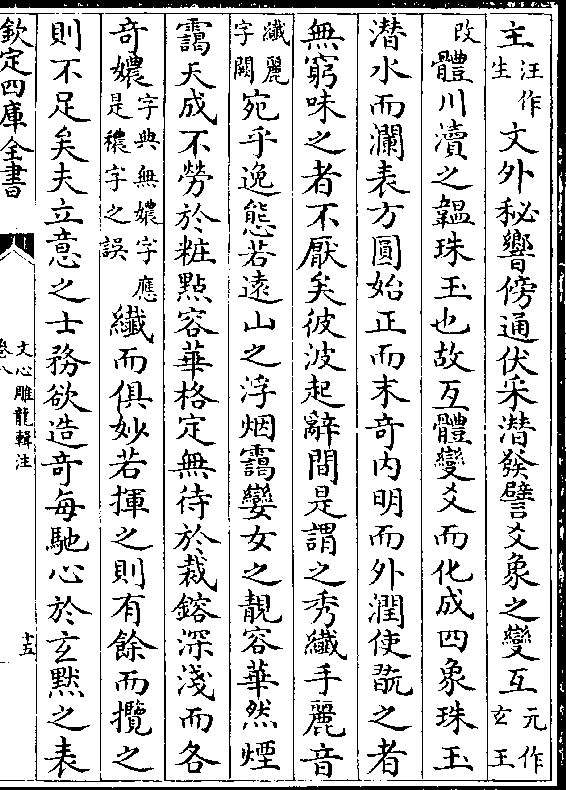 主汪作生文外秘響傍通伏采潜發譬爻象之變互元作玄王
改體川瀆之韞珠玉也故互體變爻而化成四象珠玉
潜水而瀾表方圓始正而末奇内明而外潤使翫之者
無窮味之者不厭矣彼波起辭間是謂之秀纖手麗音
纖麗字闕宛乎逸態若遠山之浮烟靄孌女之靚容華然煙
靄天成不勞於粧點容華格定無待於裁鎔深淺而各
奇穠字典無穠字應是穠字之誤纖而俱妙若揮之則有餘而攬之
則不足矣夫立意之士務欲造奇每馳心於玄默之表
欽定四庫全書
文心雕龍輯注
卷八
十五